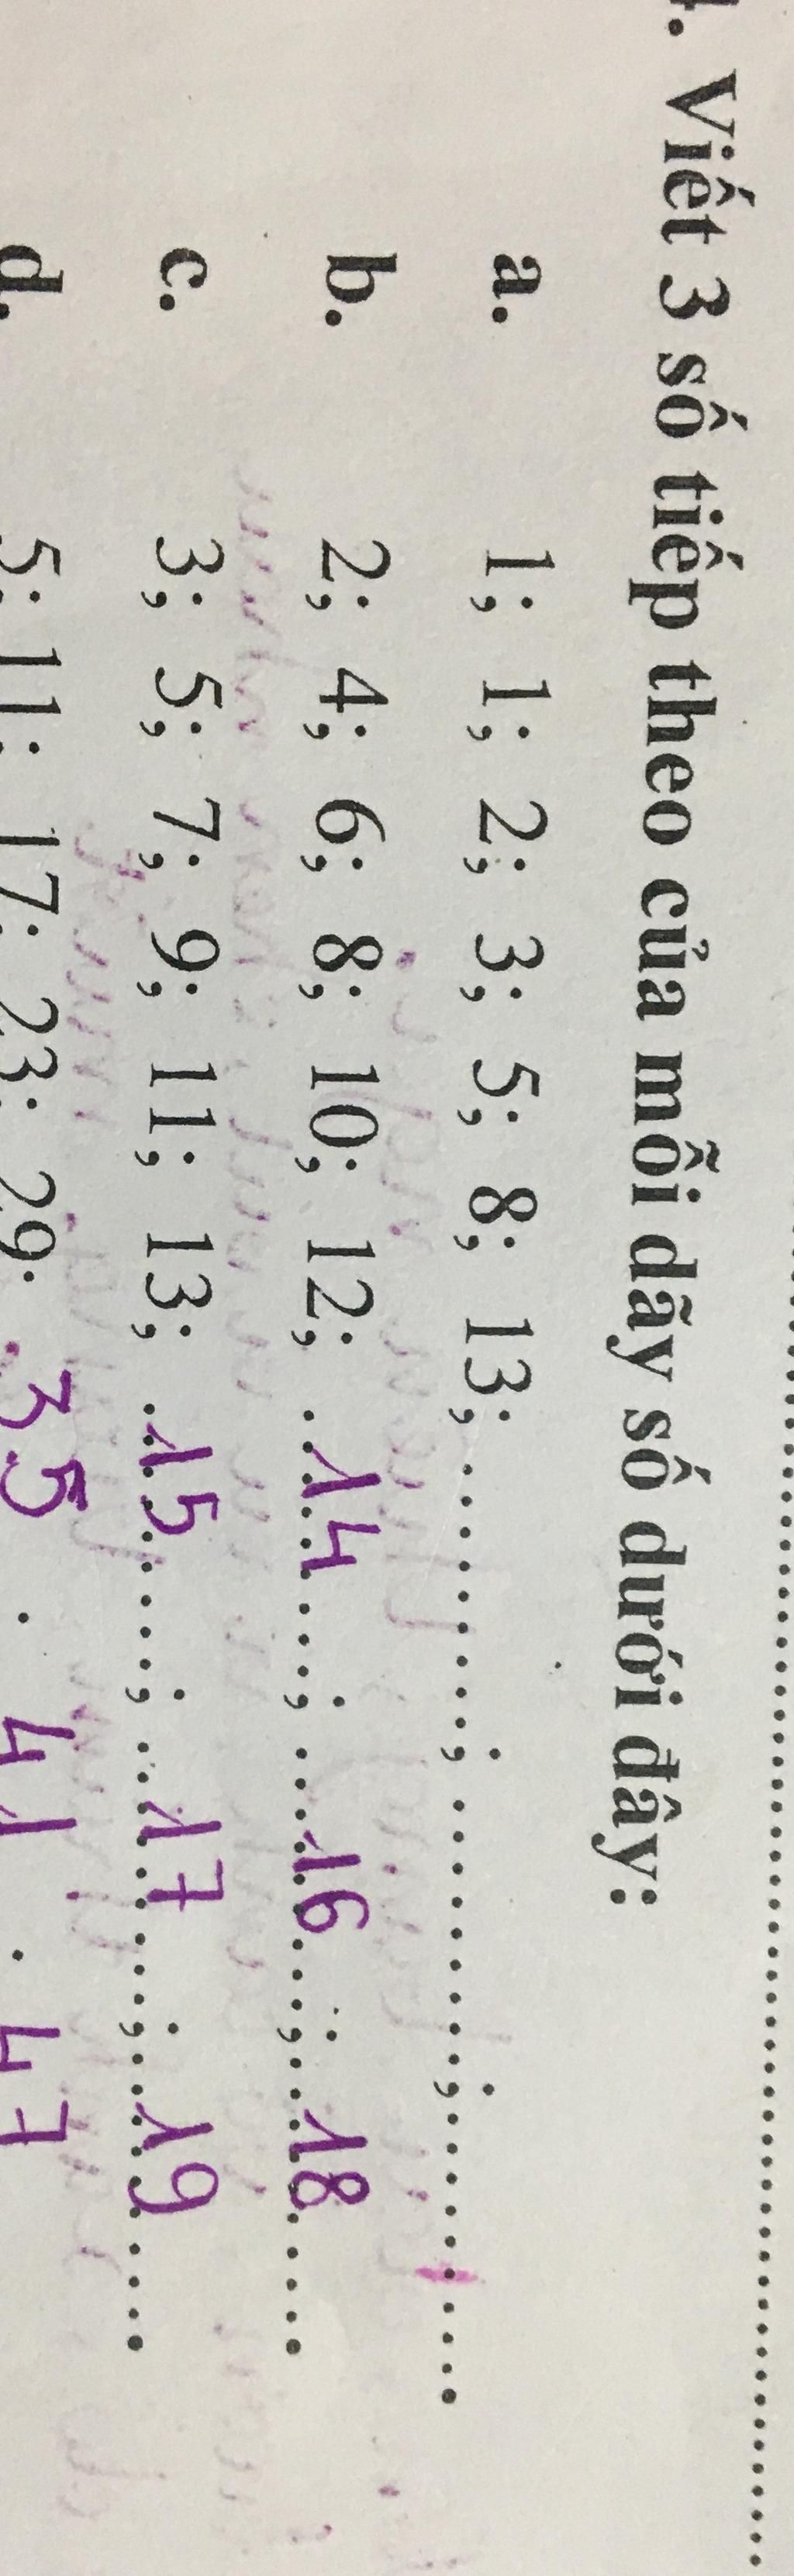 . Viết 3 số tiếp theo của mỗi dãy số dưới đây:
a. 1; 1; 2; 3; 5; 8; 13; ............; ............; ............
b. 2; 4; 6; 8; 10; 12; ...14...; ...16...; ...18...
c. 3; 5; 7; 9; 11; 13; ...15...; ...17...; ...19...
d. 5; 11; 17; 23; 29; 35 . 41 . 47